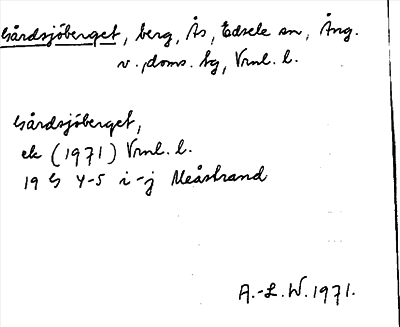 Gårdsjöberget, berg, Ås, Edsele sn, Ång.
v. doms. bg, Vrnl. l.
Gårdsjöberget,
ek (1971) Vrnl. l.
19 G 4-5 i-j Meåstrand
A.-L. W. 1971.